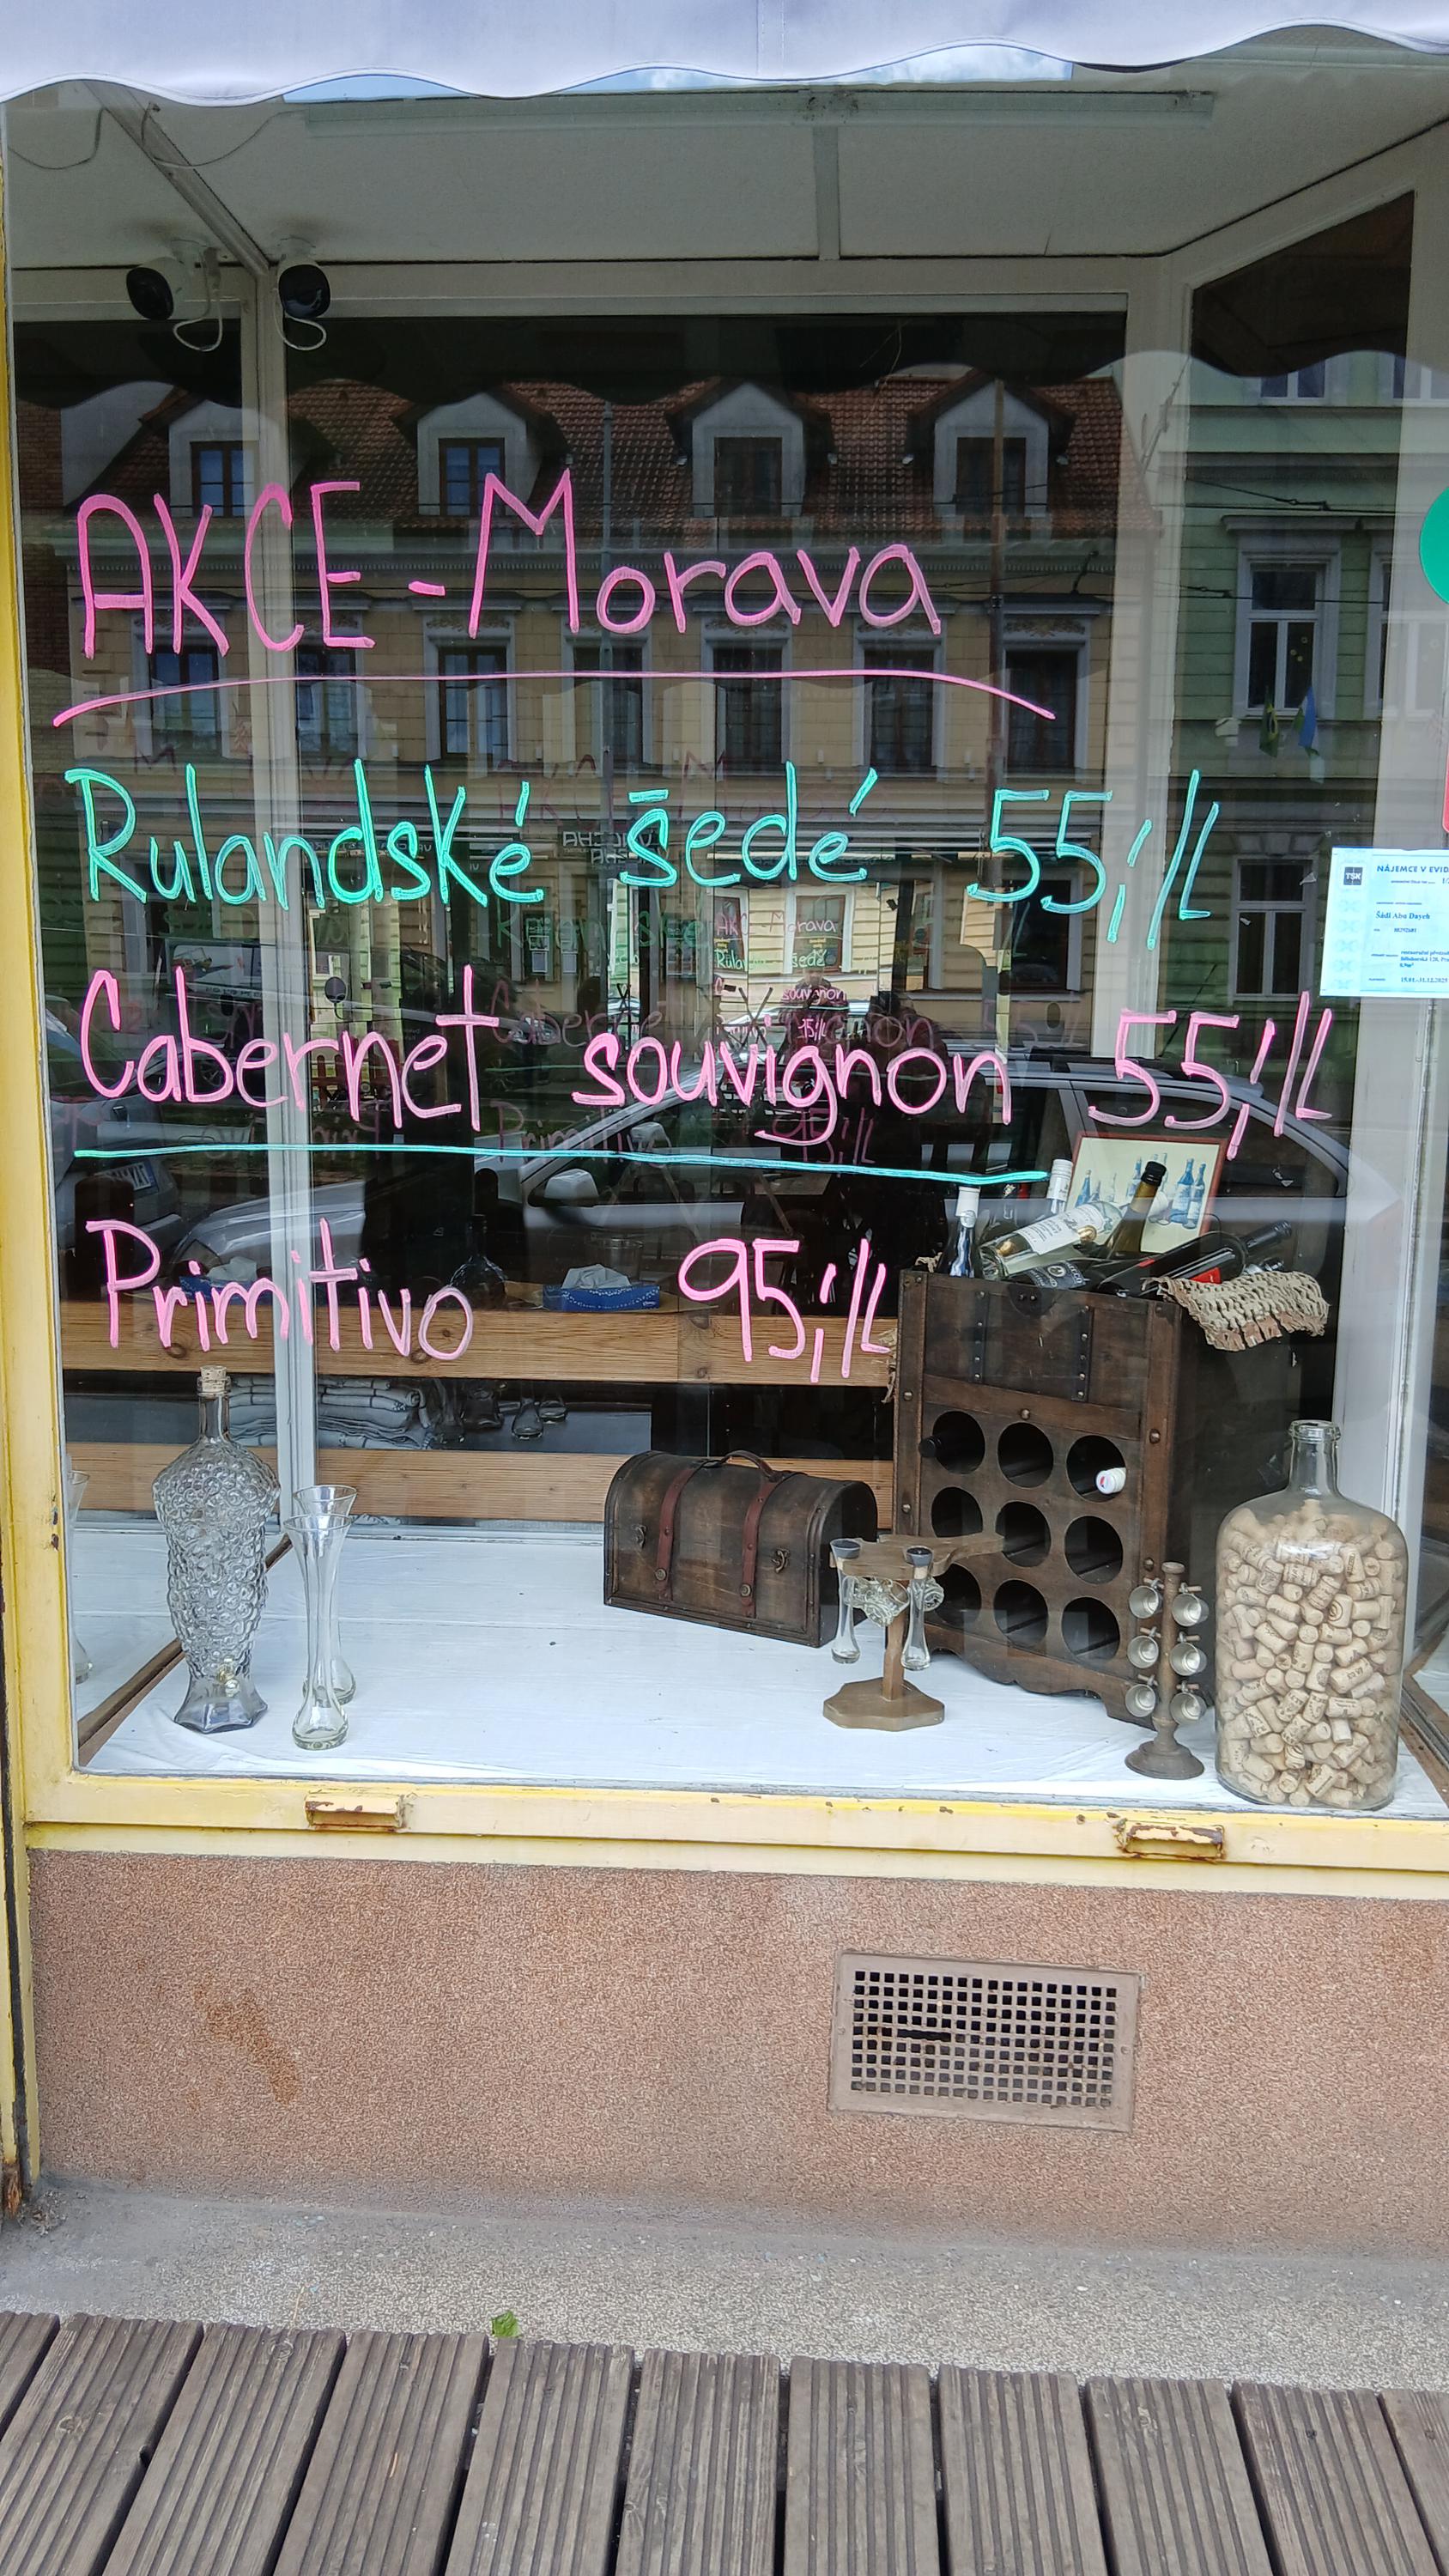 AKCE - Morava
Rulandské šedé 55,-/L
Cabernet souvignon 55,-/L
Primitivo 95,-/L
TSK
NÁJEMCE V EVID
Šádí Abu Dayeh